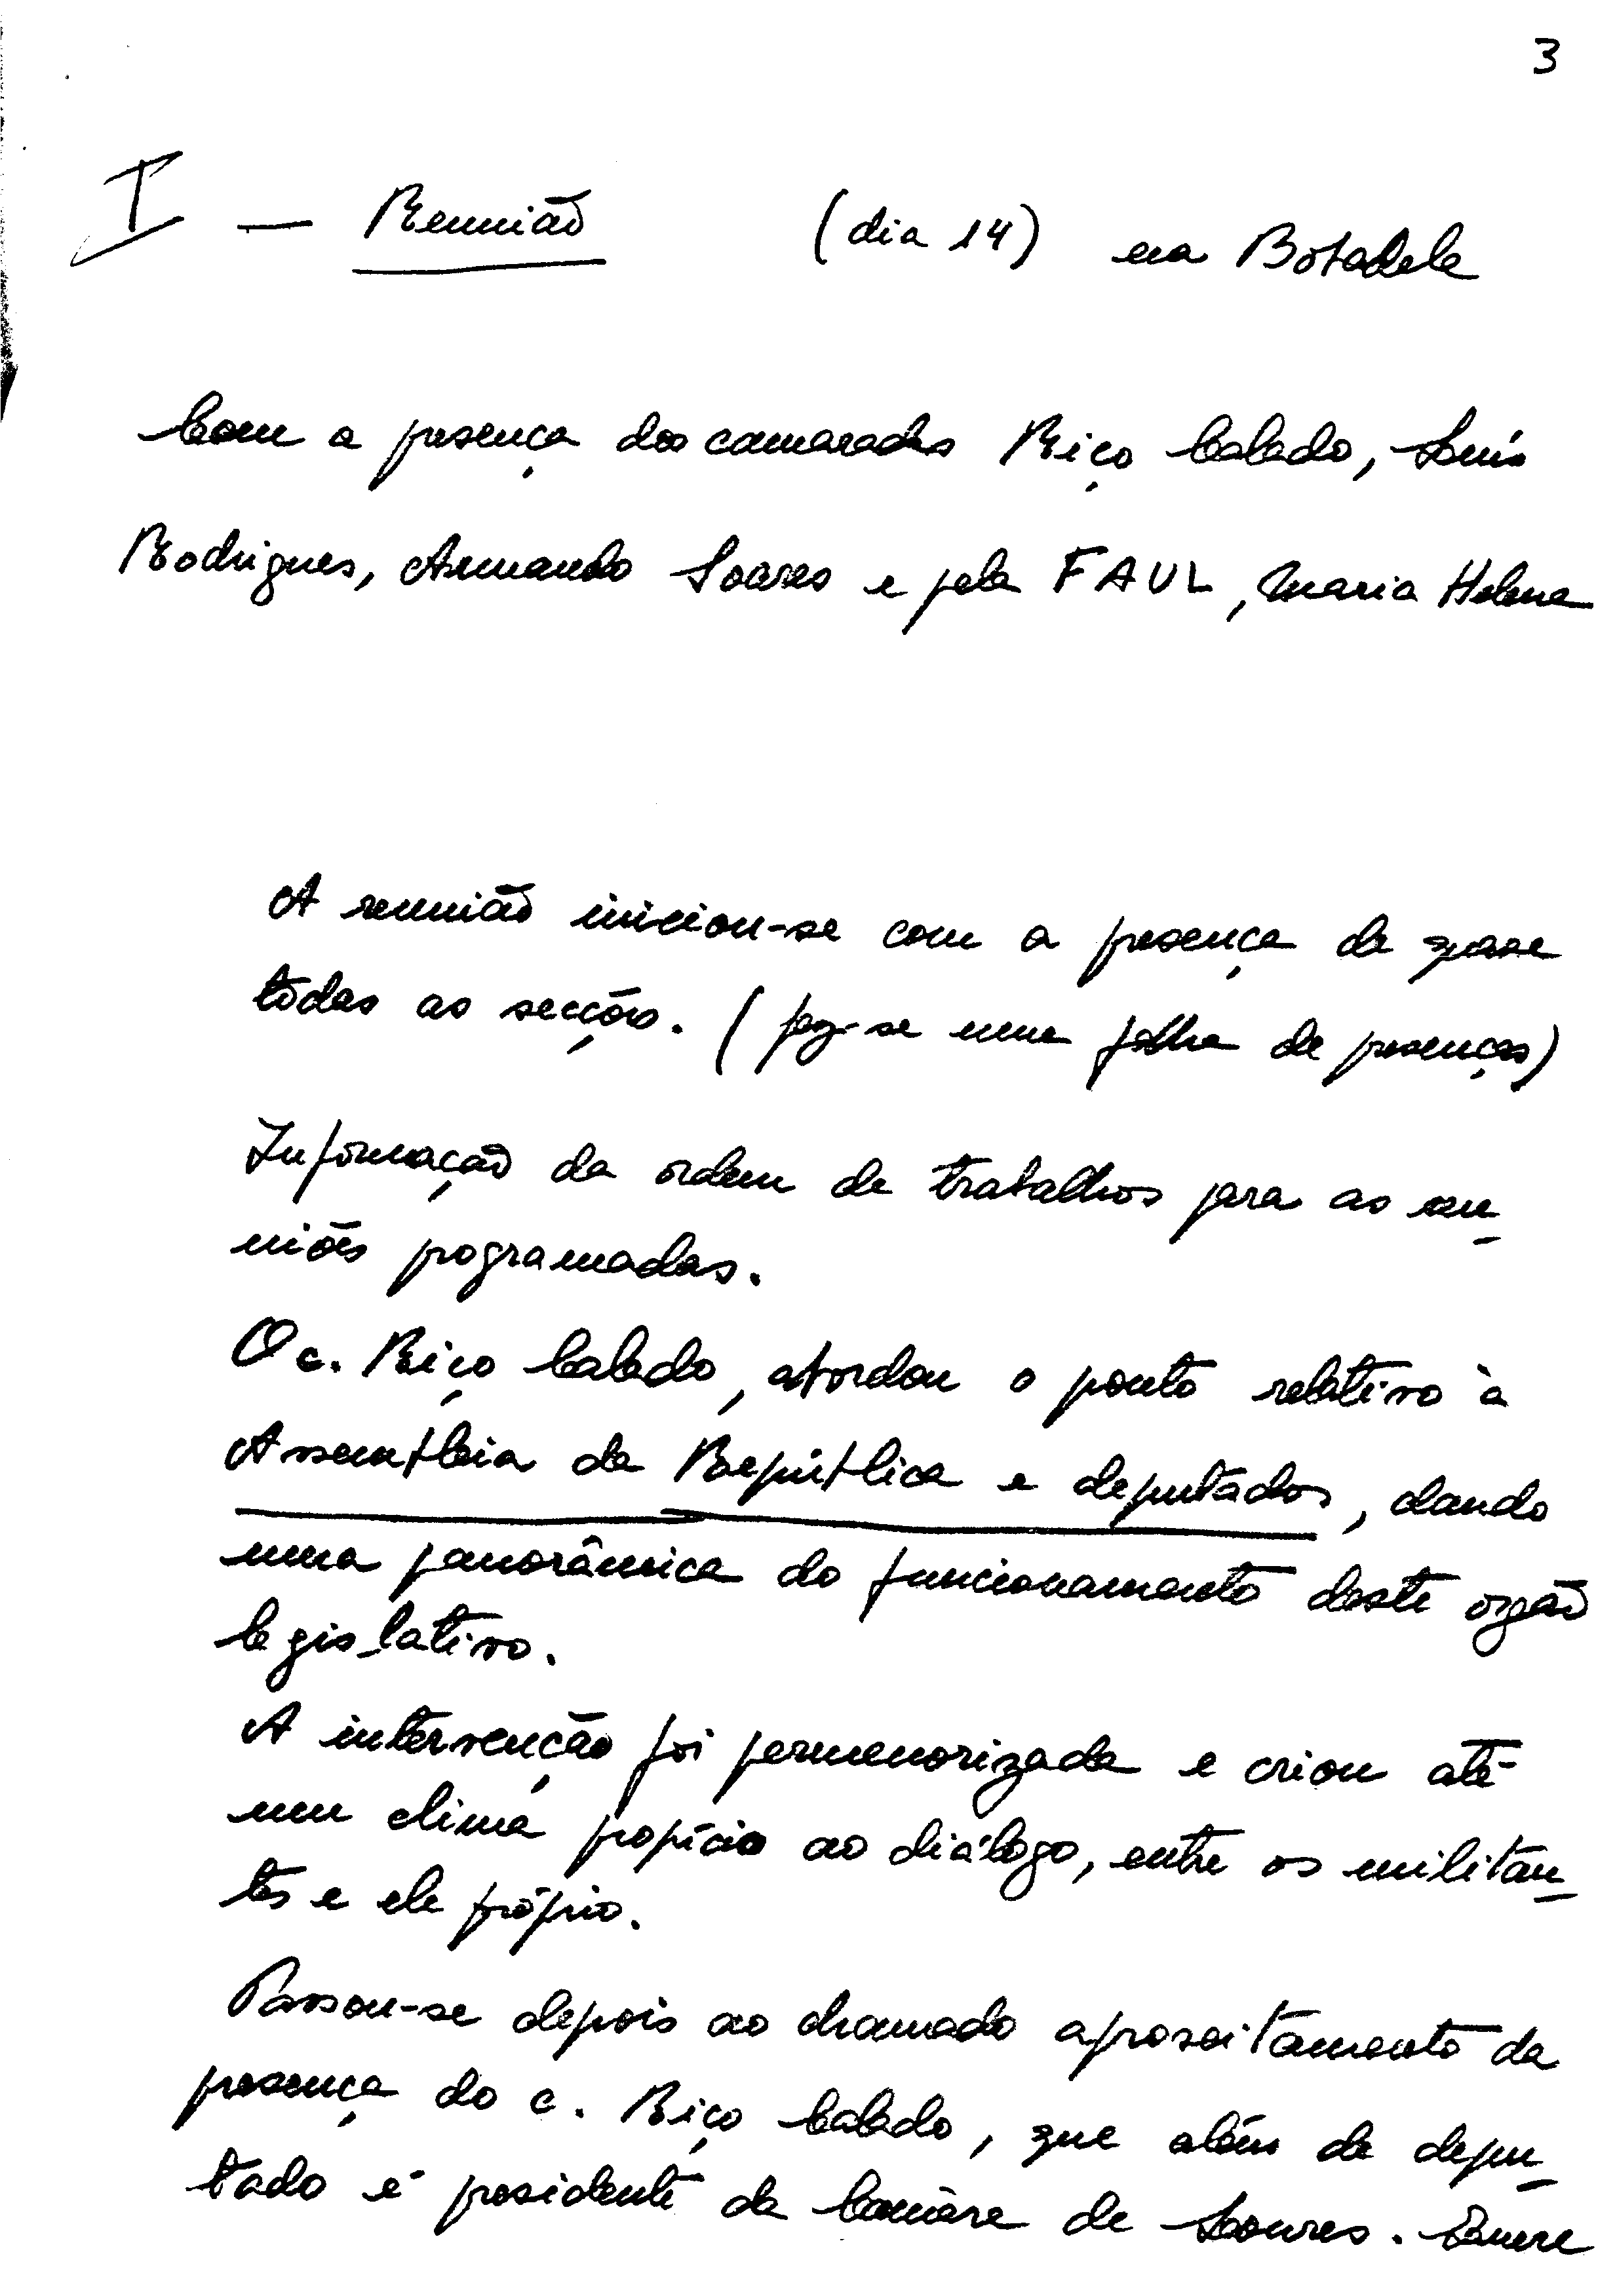 3
I — Reunião (dia 14) na Bobadela
Com a presença dos camaradas Riço Calado, Luís
Rodrigues, Armando Soares e pela FAUL, Maria Helena
A reunião iniciou-se com a presença de quase
todas as secções. (fez-se uma folha de presenças)
Informação da ordem de trabalhos para as reu_
niões programadas.
O c. Riço Calado, abordou o ponto relativo à
Assembleia da República e deputados, dando
uma panorâmica do funcionamento deste orgão
legislativo.
A intervenção foi permenorizada e criou até
um clima propício ao diálogo, entre os militan_
tes e ele próprio.
Passou-se depois ao chamado aproveitamento da
presença do c. Riço Calado, que além de depu_
tado é presidente da Camâra de Loures.